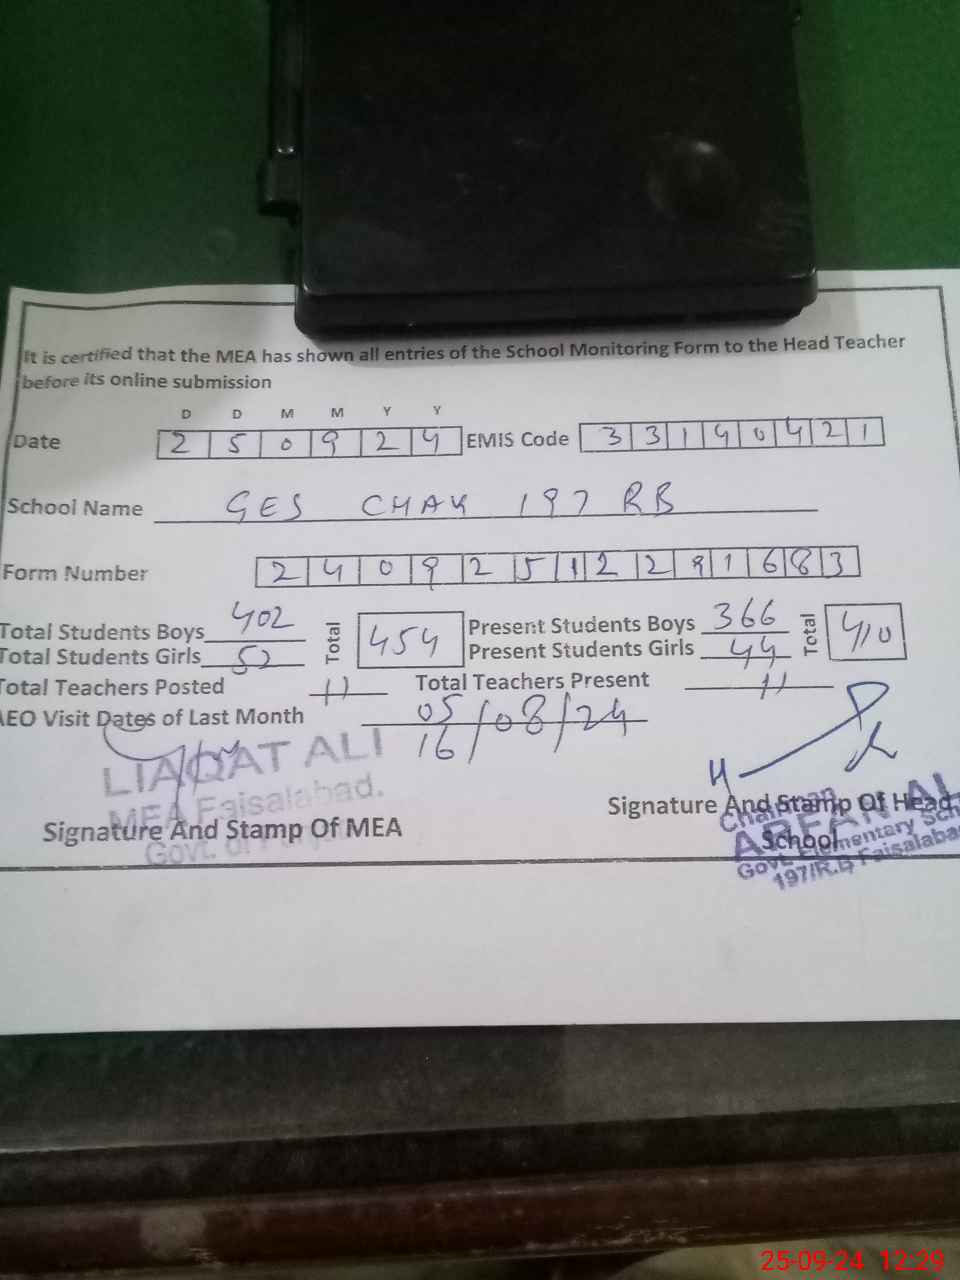 It is certified that the MEA has shown all entries of the School Monitoring Form to the Head Teacher
before its online submission
D D M M Y Y
Date 2 5 0 9 2 4 EMIS Code 3 3 1 4 0 4 2 1
School Name GES CHAK 197 RB
Form Number 2 4 0 9 2 5 1 2 2 9 1 6 8 3
Total Students Boys 402 Total 454 Present Students Boys 366 Total 410
Total Students Girls 52 Present Students Girls 44
Total Teachers Posted 11 Total Teachers Present 11
AEO Visit Dates of Last Month 05/08/24
16
LIAQAT ALI
MEA Faisalabad.
Signature And Stamp Of MEA
Govt. of
Signature And Stamp Of Head
School
Chairman
Govt. Elementary
197/R.B Faisalabad
25-09-24 12:29